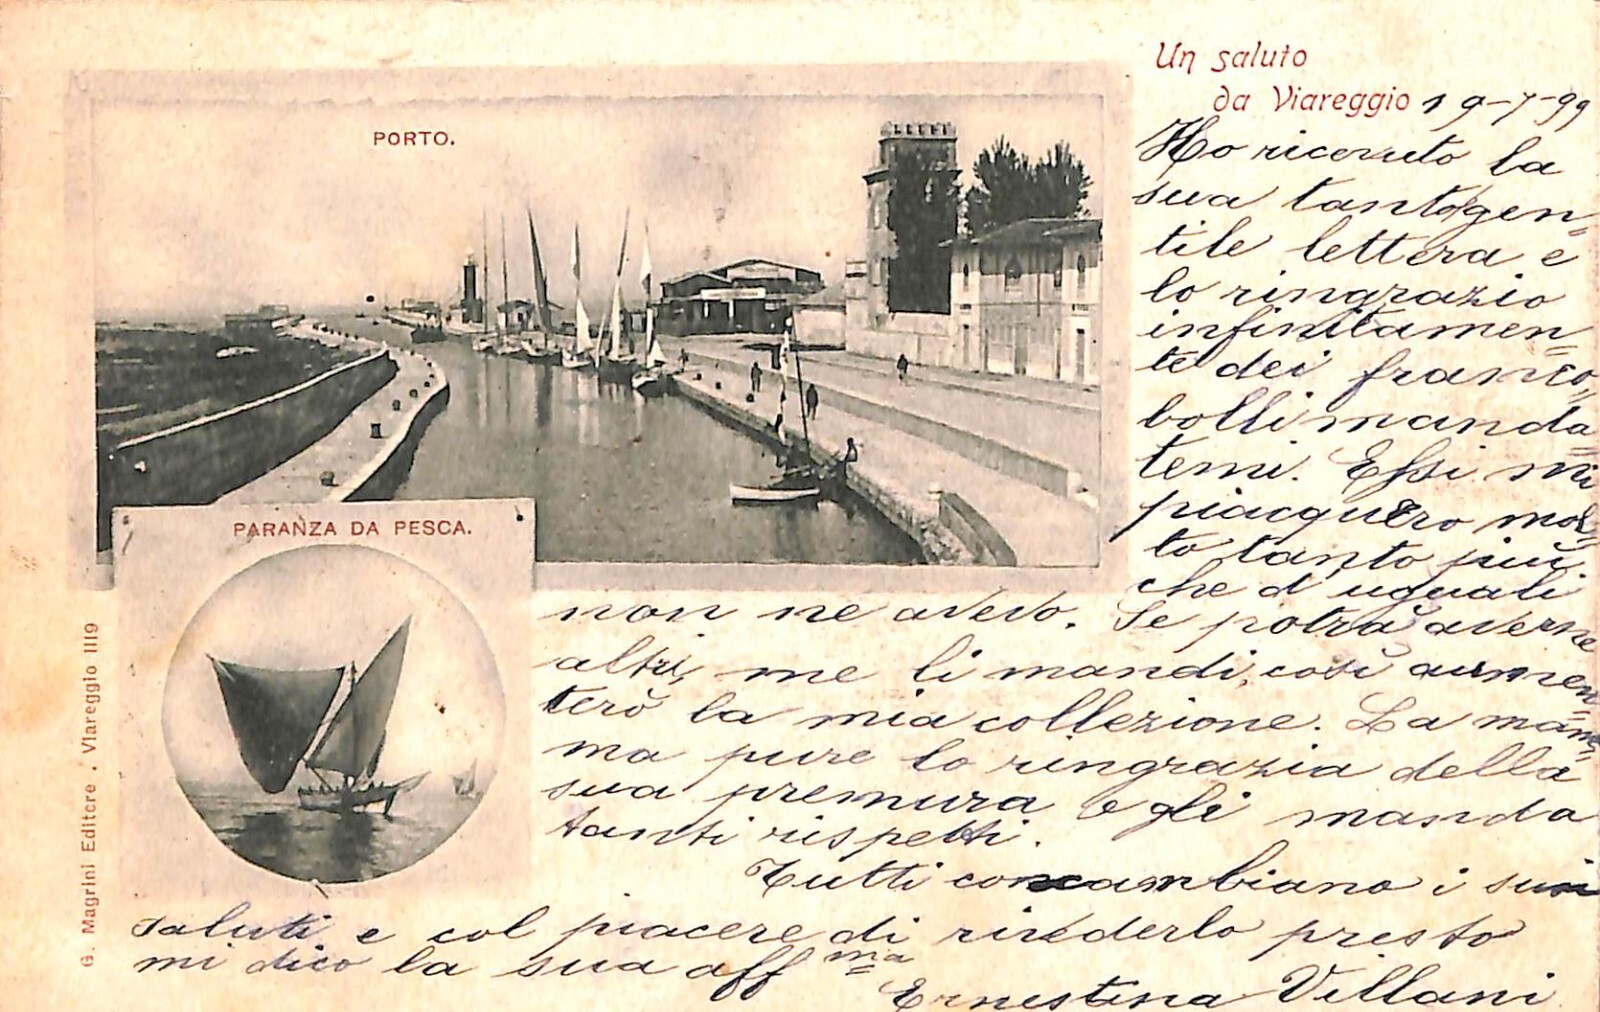 Un saluto
da Viareggio 19-7-99
PORTO.
Ho ricevuto la
sua tanto gen=
tile lettera e
lo ringrazio
infinitamen=
te dei franco=
bolli manda=
temi. Essi mi
piacquero mol=
to tanto più
che d'uguali
non ne avevo. Se potrà averne
altri, me li mandi, così aumen=
terò la mia collezione. La mam=
ma pure lo ringrazia della
sua premura e gli manda
tanti rispetti.
Tutti contraccambiano i suoi
saluti e col piacere di rivederlo presto
mi dico la sua aff ma
Ernestina Villani
PARANZA DA PESCA.
G. Magrini Editore . Viareggio 1119